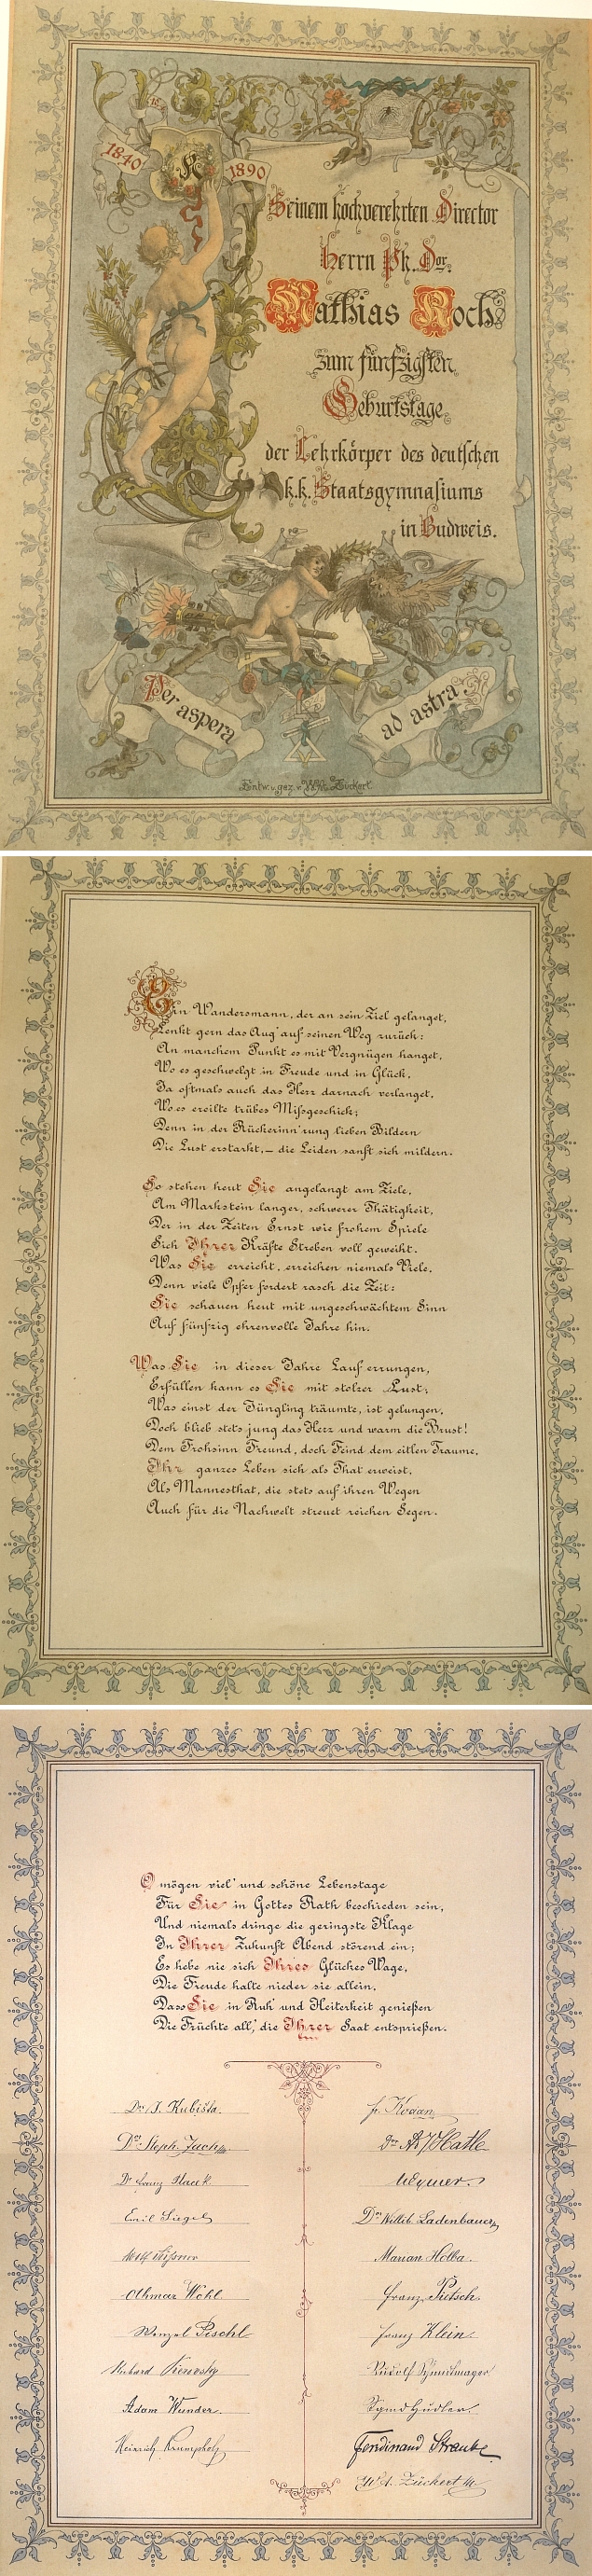 1840
1890
Seinem hochverehrten Director
Herrn Ph. Dor.
Mathias Koch
zum fünfzigsten
Geburtstage
der Lehrkörper des deutschen
k.k. Staatsgymnasiums
in Budweis.
Per aspera
ad astra
Entw. u. gez. v. Zückert.
Ein Wandersmann, der an sein Ziel gelanget,
Lenkt gern das Aug' auf seinen Weg zurück:
An manchem Punkt es mit Vergnügen hanget,
Wo es geschwelgt in Freude und in Glück,
Ja oftmals auch das Herz darnach verlanget,
Wo es ereilte trübes Missgeschick;
Denn in der Rückerinn'rung lieben Bildern
Die Lust erstarkt, – die Leiden sanft sich mildern.
So stehen heut Sie angelangt am Ziele,
Am Markstein langer, schwerer Thätigkeit,
Der in der Zeiten Ernst wie frohem Spiele
Sich Ihrer Kräfte Streben voll geweiht.
Was Sie erreicht, erreichen niemals Viele,
Denn viele Opfer fordert rasch die Zeit:
Sie schauen heut mit ungeschwächtem Sinn
Auf fünfzig ehrenvolle Jahre hin.
Was Sie in dieser Jahre Lauf errungen,
Erfüllen kann es Sie mit stolzer Lust;
Was einst der Jüngling träumte, ist gelungen,
Doch blieb stets jung das Herz und warm die Brust!
Dem Frohsinn Freund, doch Feind dem eitlen Traume,
Ihr ganzes Leben sich als That erweist,
Als Mannesthat, die stets auf ihren Wegen
Auch für die Nachwelt streuet reichen Segen.
O mögen viel' und schöne Lebenstage
Für Sie in Gottes Rath beschieden sein,
Und niemals dringe die geringste Klage
In Ihrer Zukunft Abend störend ein;
Es hebe nie sich Ihres Glückes Wage,
Die Freude halte nieder sie allein,
Dass Sie in Ruh' und Heiterkeit genießen
Die Früchte all', die Ihrer Saat entsprießen.
Dr. J. Kubišta.
Fr. Kocian
Dr. Steph. Zach
Dr. Hatle
Dr. Franz
Wegner
Emil Siegel
Dr. Willib. Ladenbauer
Marian Holba.
Othmar Wöhl.
Franz Pietsch.
Wenzel Peschl
Franz Klein.
Rudolf Schmidtmayer
Adam Wunder.
Sigmd Hudler.
Heinrich Krumpholz
Ferdinand Straube
W. A. Zückert